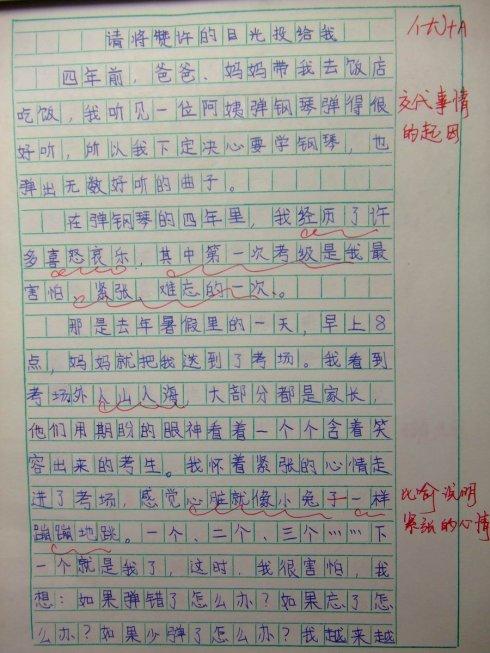 请将赞许的目光投给我
四年前，爸爸、妈妈带我去饭店
吃饭，我听见一位阿姨弹钢琴弹得很
好听，所以我下定决心要学钢琴，也
弹出无数好听的曲子。
在弹钢琴的四年里，我经历了许
多喜怒哀乐，其中第一次考级是我最
害怕、紧张、难忘的一次。
那是去年暑假里的一天，早上8
点，妈妈就把我送到了考场。我看到
考场外人山人海，大部分都是家长，
他们用期盼的眼神看着一个个含着笑
容出来的考生。我怀着紧张的心情走
进了考场，感觉心脏就像小兔子一样
蹦蹦地跳。一个、二个、三个……下
一个就是我了，这时，我很害怕，我
想：如果弹错了怎么办？如果忘了怎
么办？如果少弹了怎么办？我越来越
交代事情
的起因
比喻说明
紧张的心情